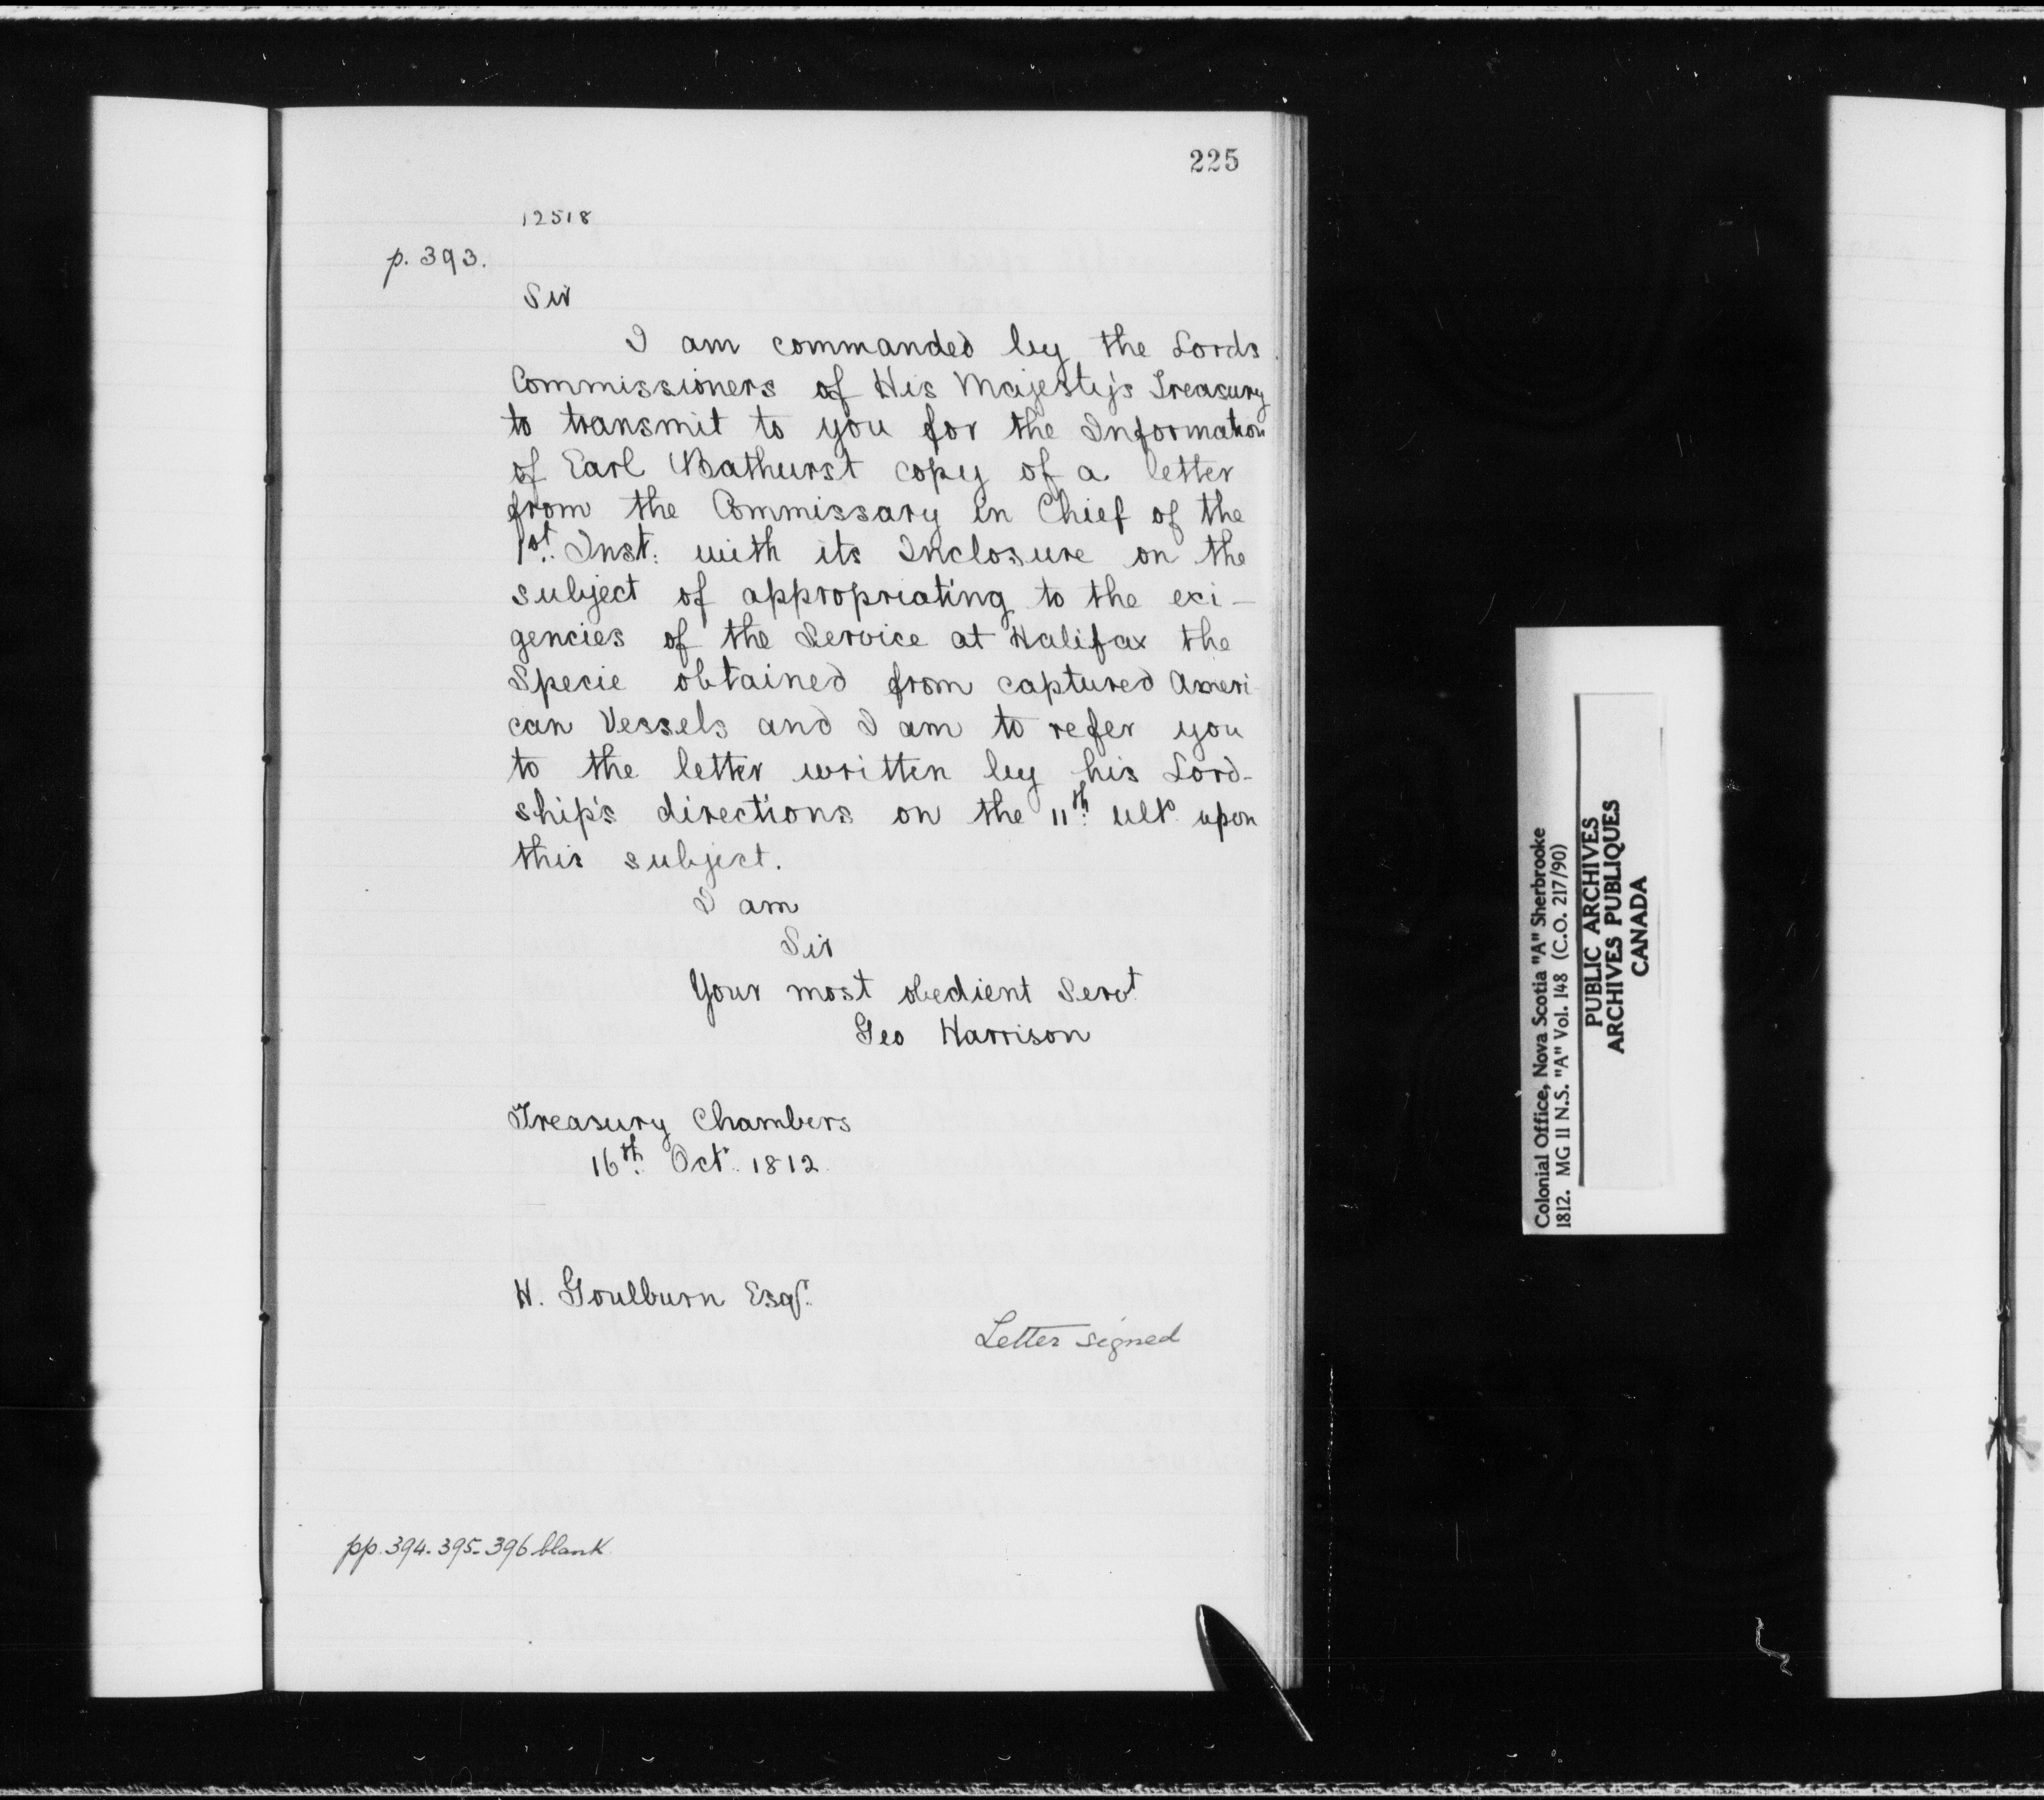 225
12518
p. 393.
Sir
I am commanded by the Lords
Commissioners of His Majesty's Treasury
to transmit to you for the Information
of Earl Bathurst copy of a letter
from the Commissary in Chief of the
1st. Inst: with its Inclosure on the
subject of appropriating to the exi-
gencies of the Service at Halifax the
Specie obtained from captured Ameri-
can Vessels and I am to refer you
to the letter written by his Lord-
ship's directions on the 11th. ulto. upon
this subject.
I am
Sir
Your most obedient Servt.
Geo Harrison
Treasury Chambers
16th. Oct. 1812.
H. Goulburn Esqr.
Letter signed
pp. 394-395-396 blank
Colonial Office, Nova Scotia "A" Sherbrooke
1812. MG 11 N.S. "A" Vol. 148 (C.O. 217/90)
PUBLIC ARCHIVES
ARCHIVES PUBLIQUES
CANADA